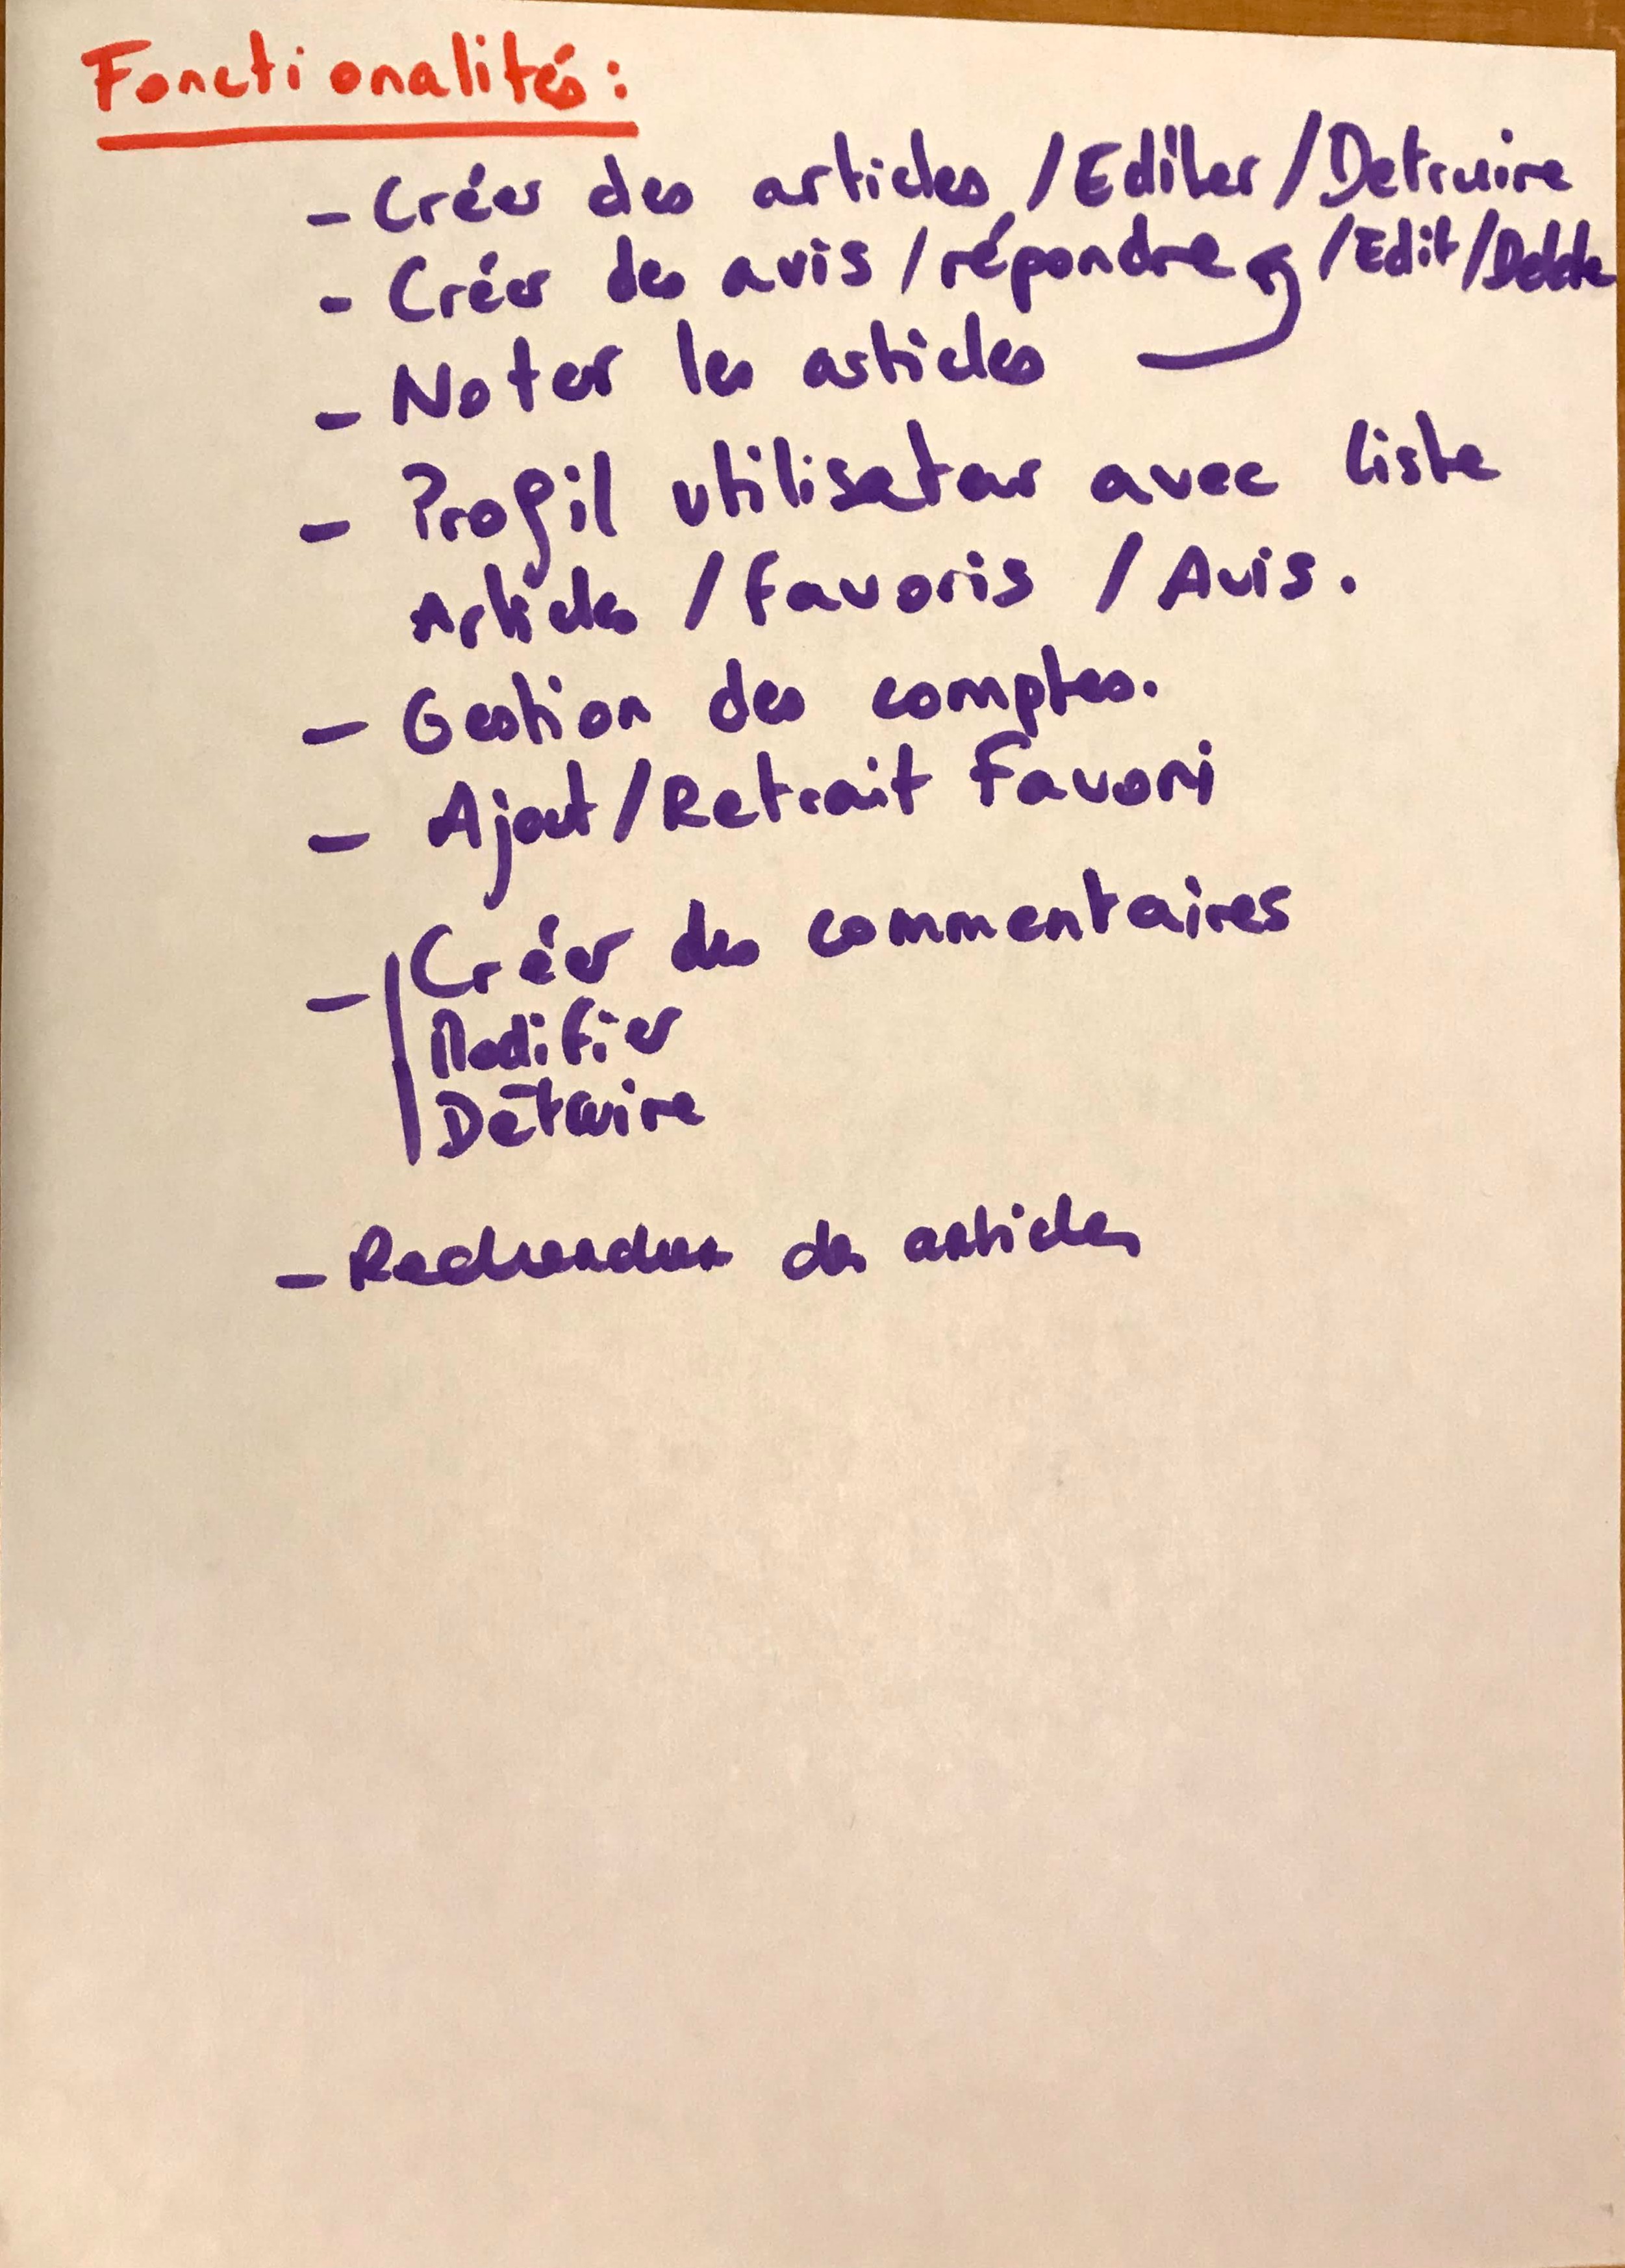 Fonctionalités :
- Créer des articles / Editer / Detruire
- Créer des avis / répondre / Edit / Delete
- Noter les articles
- Profil utilisateur avec liste
Articles / favoris / Avis.
- Gestion des comptes.
- Ajout / Retrait Favori
- Créer des commentaires
Modifier
Détruire
- Rechercher des articles